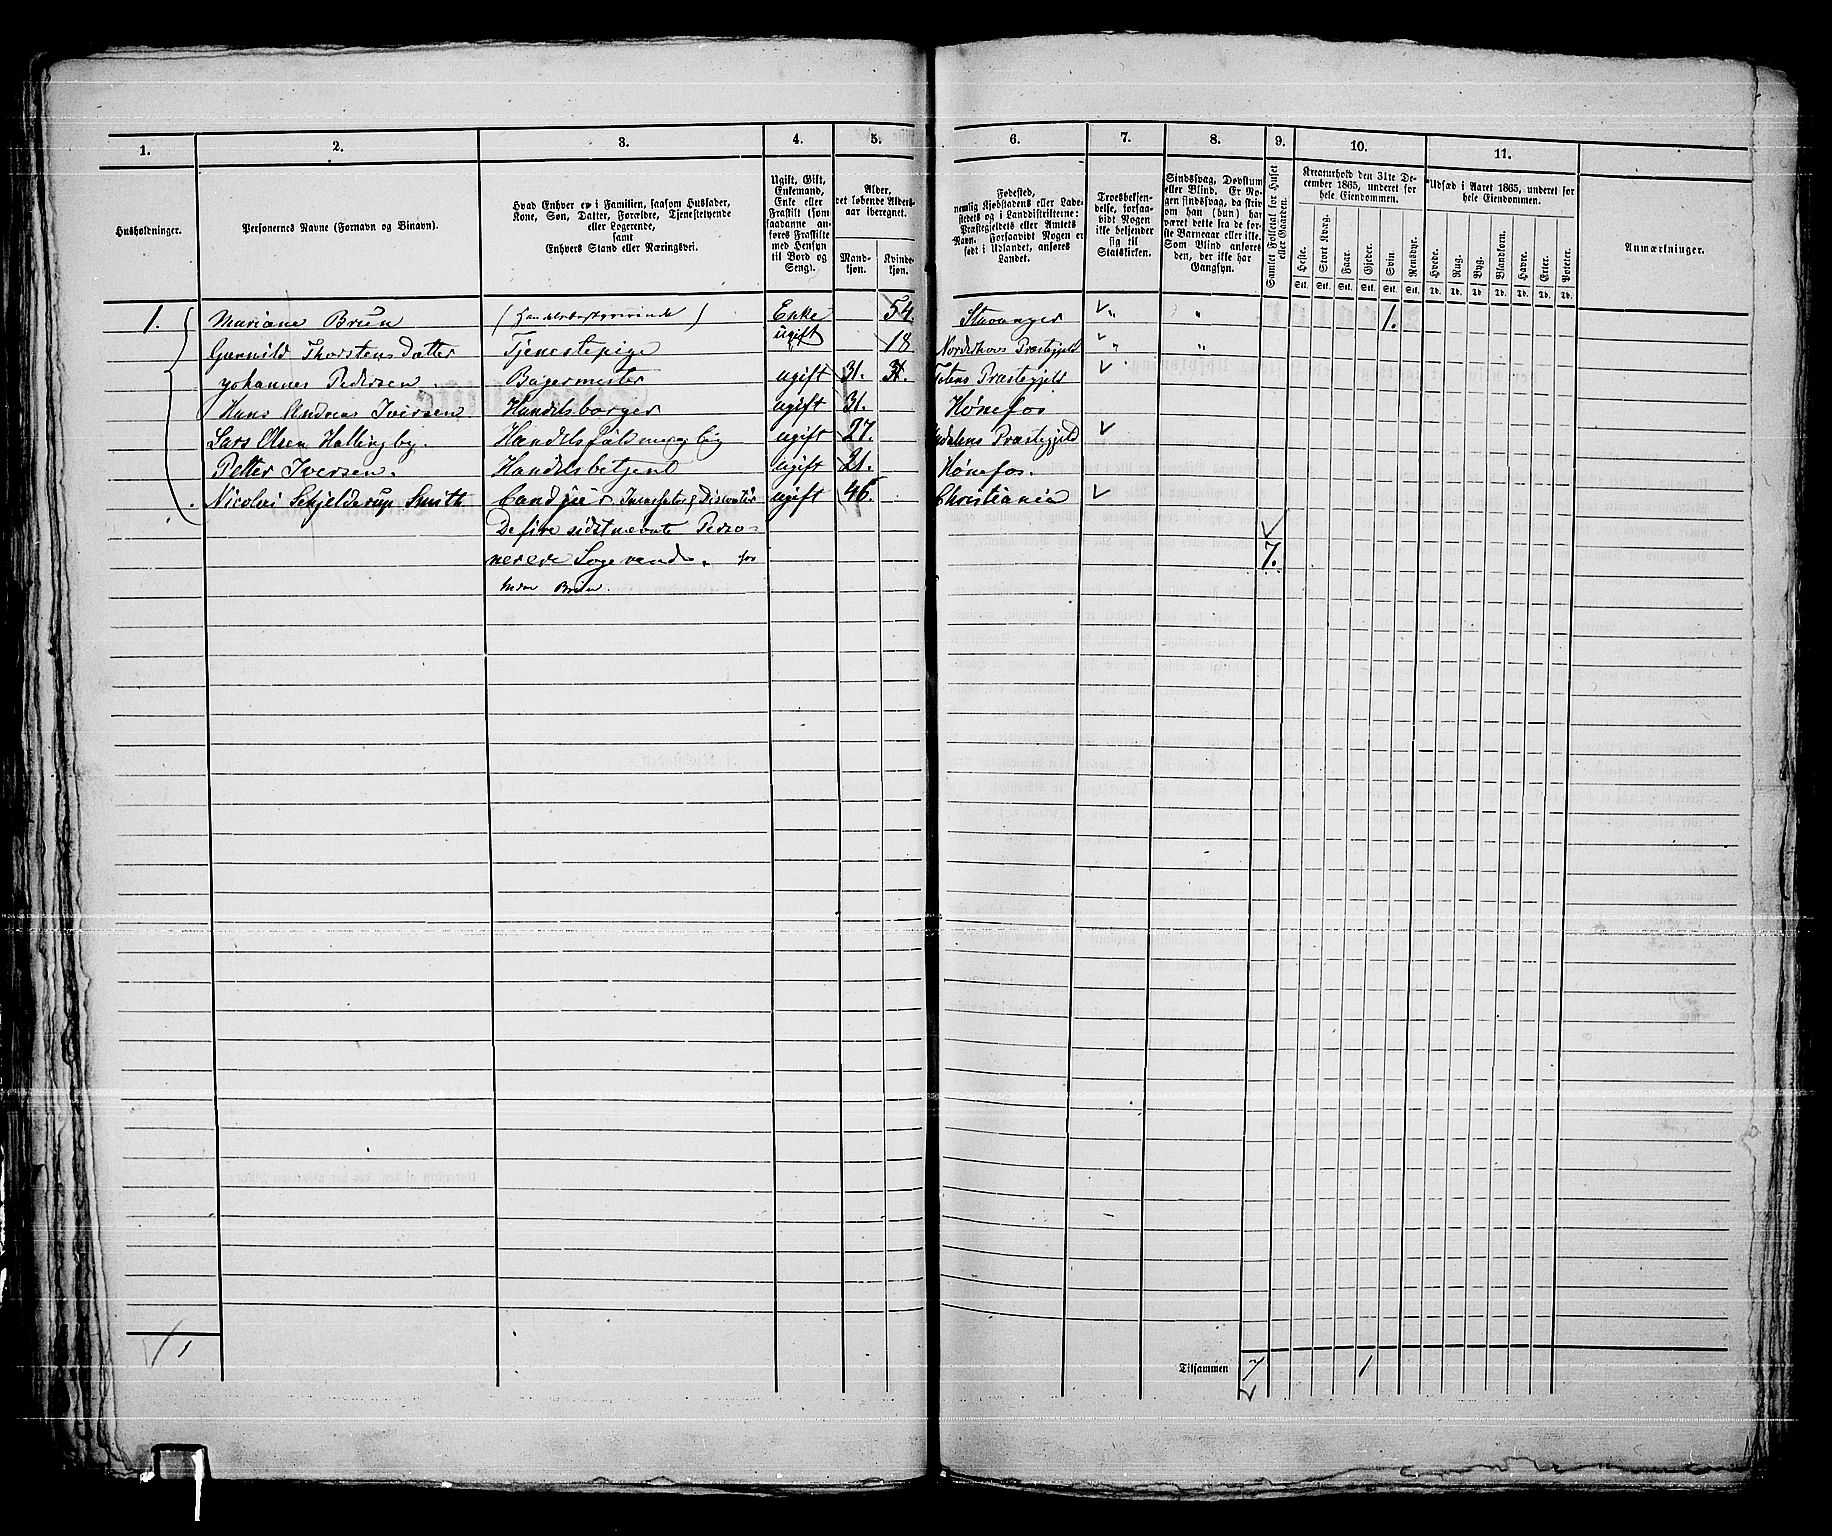 1. 2. 3. 4. 5. 6. 7. 8. 9. 10. 11.
Husholdninger.
Personernes Navne (Fornavn og Binavn).
Hvad Enhver er i Familien, saasom Husfader,
Kone, Søn, Datter, Forældre, Tjenestetyende
eller Logerende,
samt
Enhvers Stand eller Næringsvei.
Ugift, Gift,
Enkemand,
Enke eller
Fraskilt (som
saadanne an-
føres Fraskilte
med Hensyn
til Bord og
Seng).
Alder,
det løbende Alders-
aar iberegnet.
Mand-
kjøn.
Kvinde-
kjøn.
Fødested,
nemlig Kjøbstadens eller Lade-
stedets og i Landdistrikterne:
Præstegjeldets eller Amtets
Navn. Forsaavidt Nogen er
født i Udlandet, anføres
Landet.
Troesbekjen-
delse, forsaa-
vidt Nogen
ikke bekjender
sig til
Statskirken.
Sindssvag, Døvstum
eller Blind. Er No-
gen sindssvag, da skriv
om han (hun) har
været dette fra de før-
ste Barneaar eller ikke.
Som Blind anføres
den, der ikke har
Gangsyn.
Samlet Folketal for Huset
eller Gaarden.
Kreaturhold den 31te De-
cember 1865, underet for
hele Eiendommen.
Heste. Stort Kvæg. Faar. Gjeder. Svin. Rensdyr.
Stk. Stk. Stk. Stk. Stk. Stk.
Udsæd i Aaret 1865, underet for
hele Eiendommen.
Hvede. Rug. Byg. Blandkorn. Havre. Erter. Poteter.
Td. Td. Td. Td. Td. Td. Td.
Anmærkninger.
1. Mariane Brun (Handelsborgerinde) Enke 54 Stavanger " " 1.
Gunnild Thorstens Datter Tjenestepige ugift 18 Norderhovs Præstegjeld " "
Johannes Pedersen. Bagermester ugift 31. Totens Præstegjeld
Hans Andreas Iversen Handelsborger ugift 31. Hønefos
Lars Olsen Hallingby. ugift 27. Præstegjeld
Petter Iversen. Handelsbetjent ugift 21. Hønefos.
Nicolai Schjelderup Smith ugift 46. Christiania
De fire sidstnævnte Perso-
nerere Logerende. for 7.
Brun.
1
Tilsammen 7 1